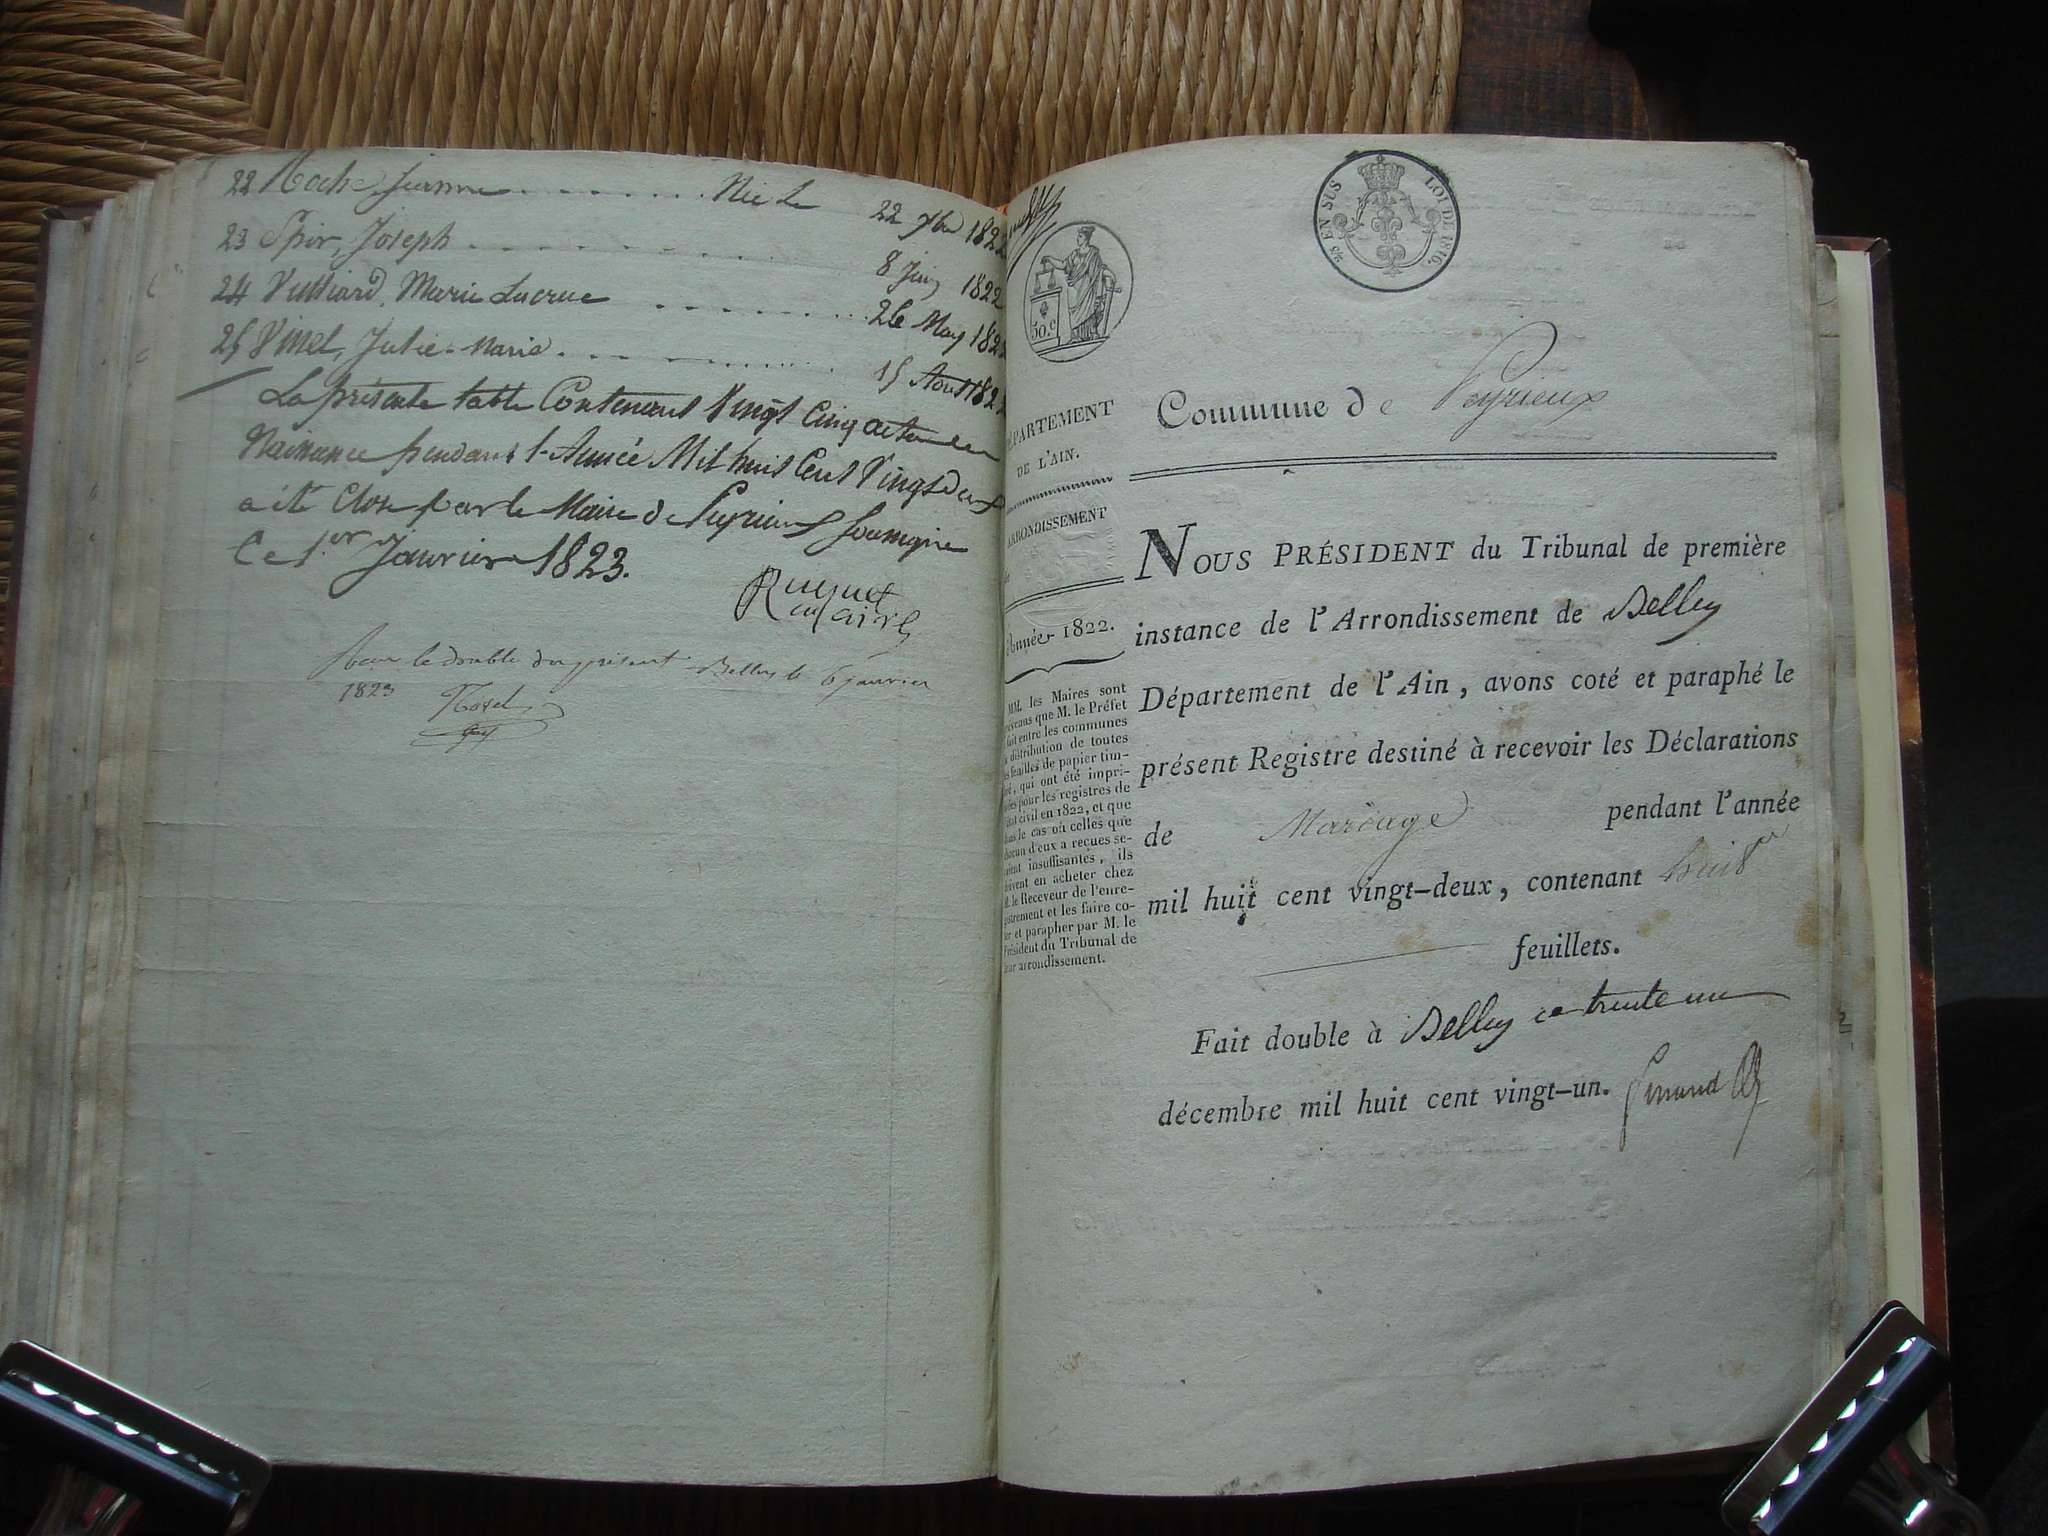 22 Roche, Jeanne . . . . . . . . . Née Le 22 7bre 1822
23 Spir, Joseph . . . . . . . . . 8 Juin 1822
24 Vulliard, Marie Lucrece . . . . . . . . 26 May 1822
25 Vinel, Julie-Marie . . . . . . . . . 15 Aoust 1822
La présente table Contenant Vingt Cinq actes de
Naissance pendant l'Année Mil huit Cent Vingt deux
a été Close par le Maire de Peyrieux Soussigné
Ce 1.er Janvier 1823.
Ruynet
maire
le double du présent Belley le 6 janvier
1823
EN SUS LOI DE 1816.
50.c
Commune de Peyrieux
DÉPARTEMENT
DE L'AIN.
ARRONDISSEMENT
Année 1822.
MM. les Maires sont
prévenus que M. le Préfet
fait entre les communes
la distribution de toutes
les feuilles de papier tim-
bré, qui ont été impri-
mées pour les registres de
l'état civil en 1822, et que
dans le cas où celles que
chacun d'eux a reçues se-
raient insuffisantes, ils
doivent en acheter chez
M. le Receveur de l'enre-
gistrement et les faire co-
ter et parapher par M. le
Président du Tribunal de
leur arrondissement.
NOUS PRÉSIDENT du Tribunal de première
instance de l'Arrondissement de Belley
Département de l'Ain, avons coté et paraphé le
présent Registre destiné à recevoir les Déclarations
de Mariage pendant l'année
mil huit cent vingt-deux, contenant huit
feuillets.
Fait double à Belley ce trente un
décembre mil huit cent vingt-un.